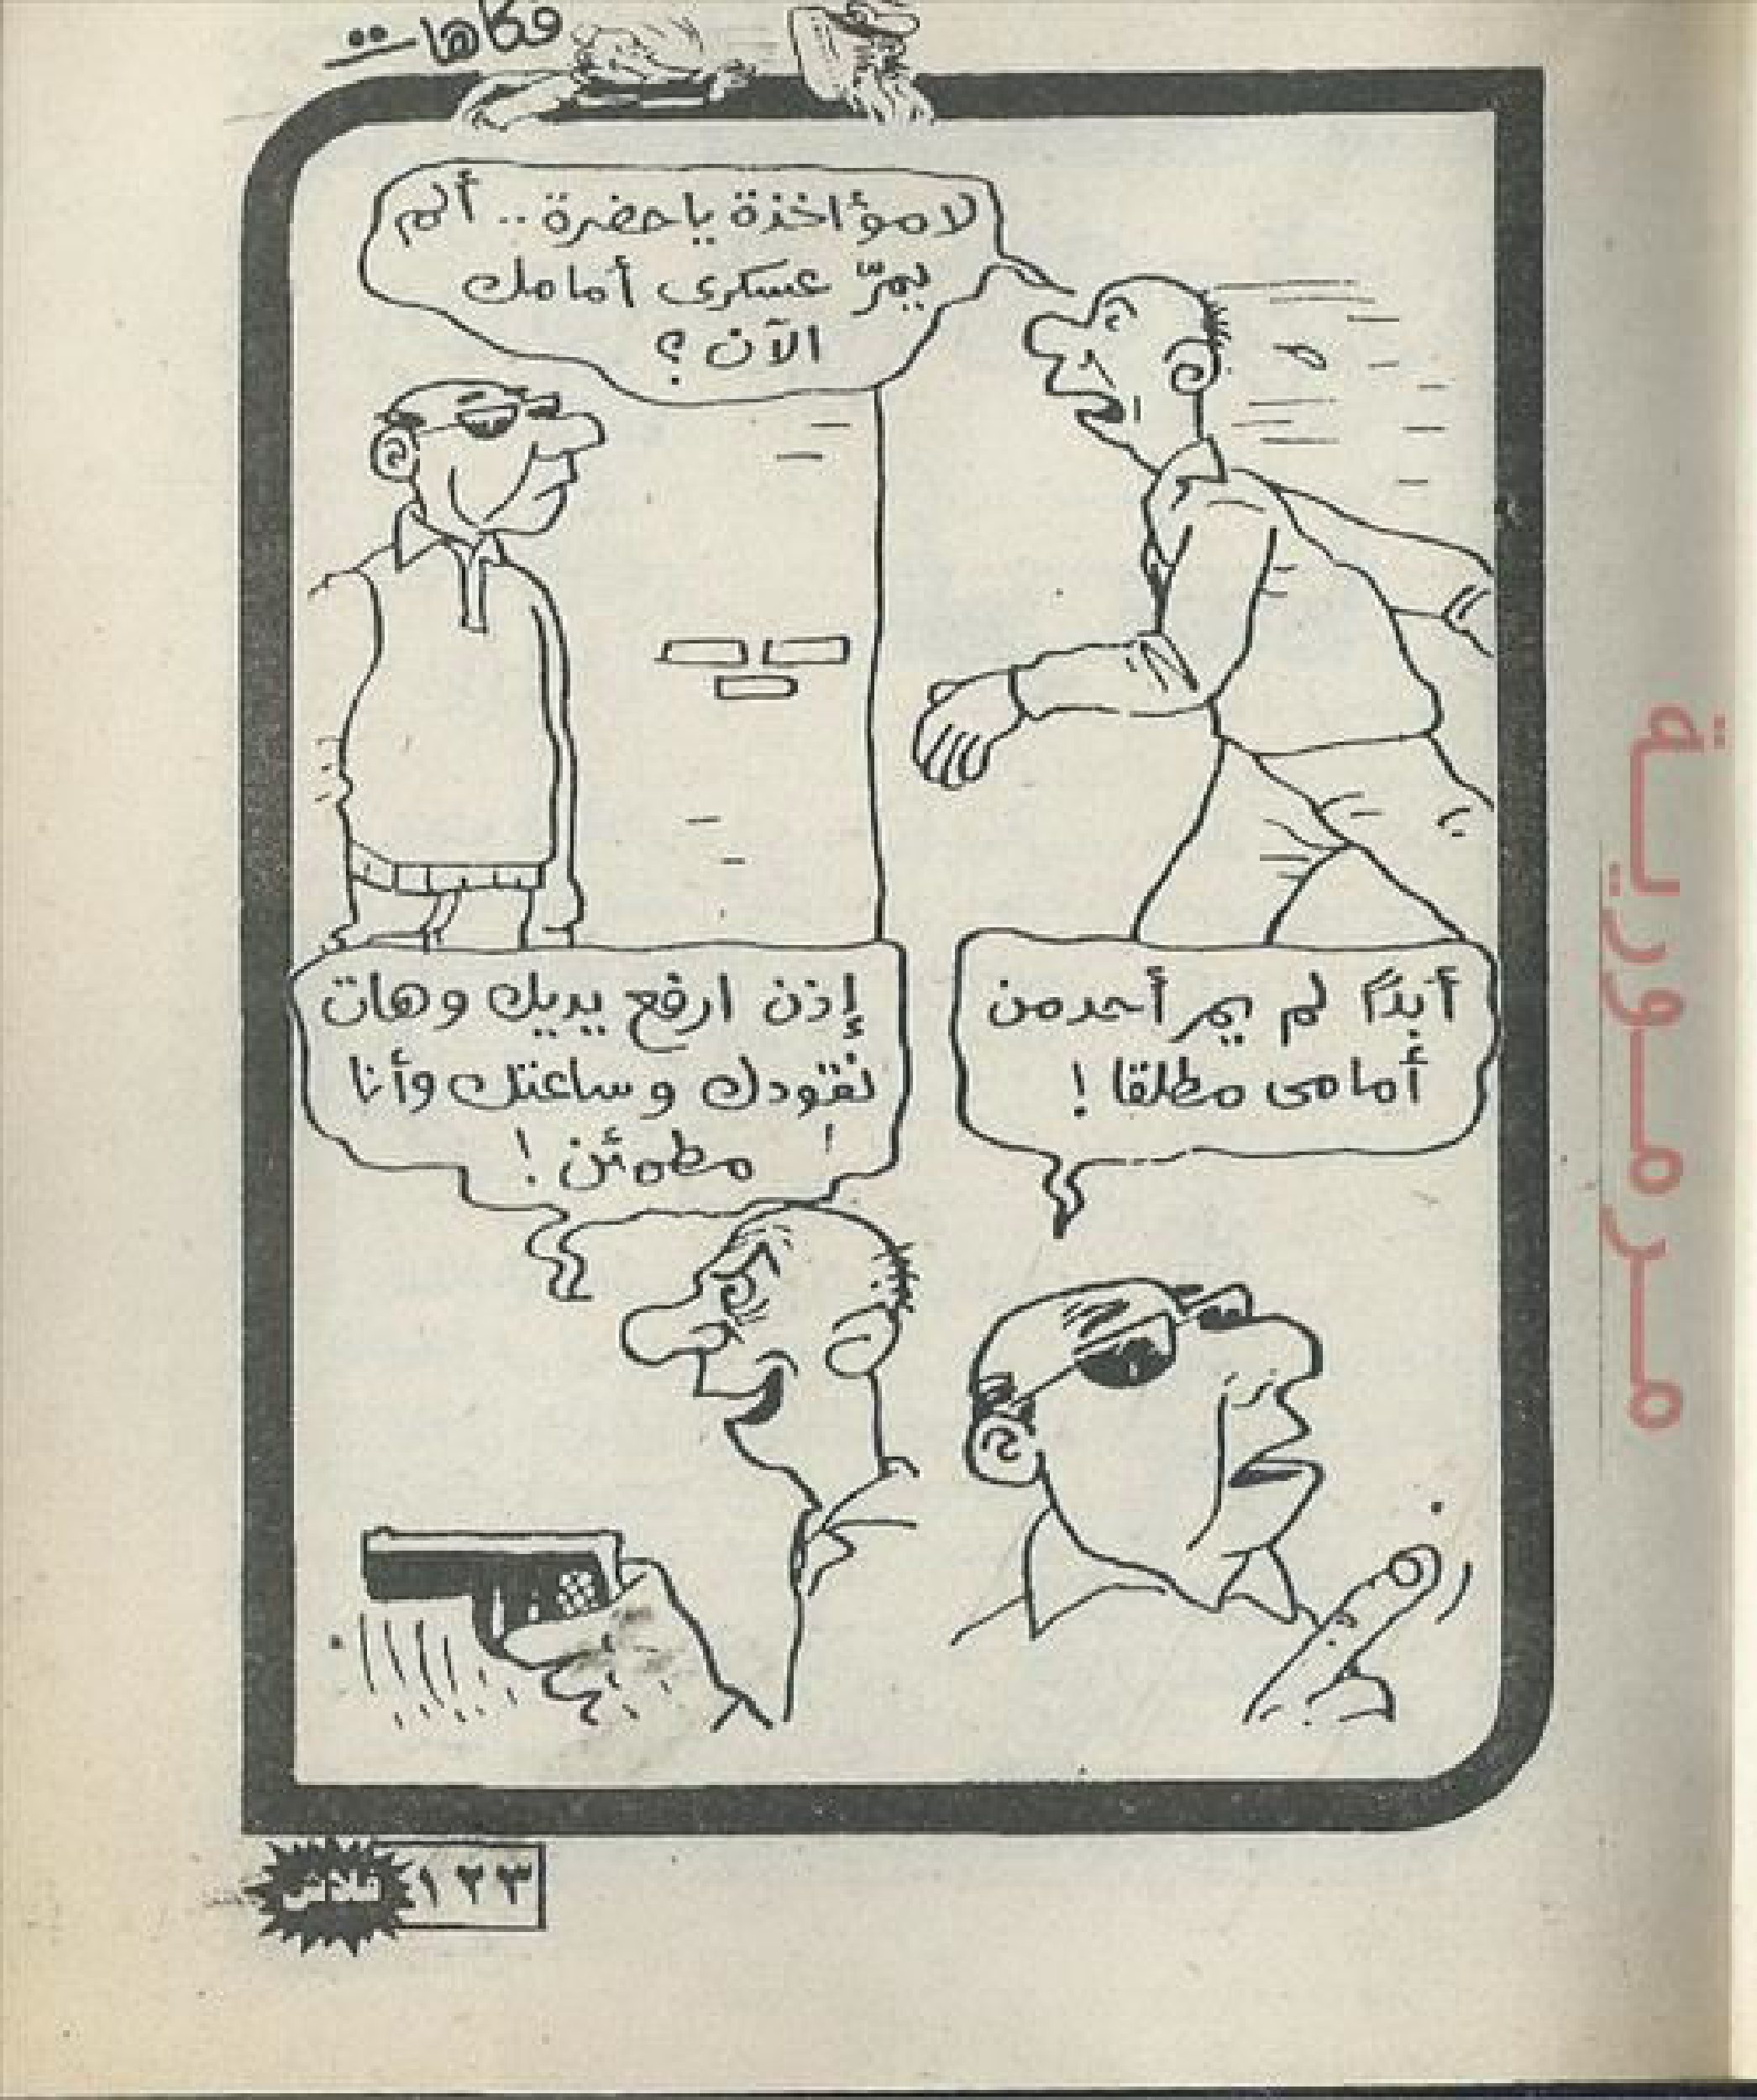 فكاهات
لا مؤاخذة يا حضرة .. ألم
يمرّ عسكرى أمامك
الآن ؟
أبدًا لم يمر أحد من
أمامى مطلقا !
إذن ارفع يديك وهات
نقودك وساعتك وأنا
مطمئن !
١٢٣
فلاش
مرمورية